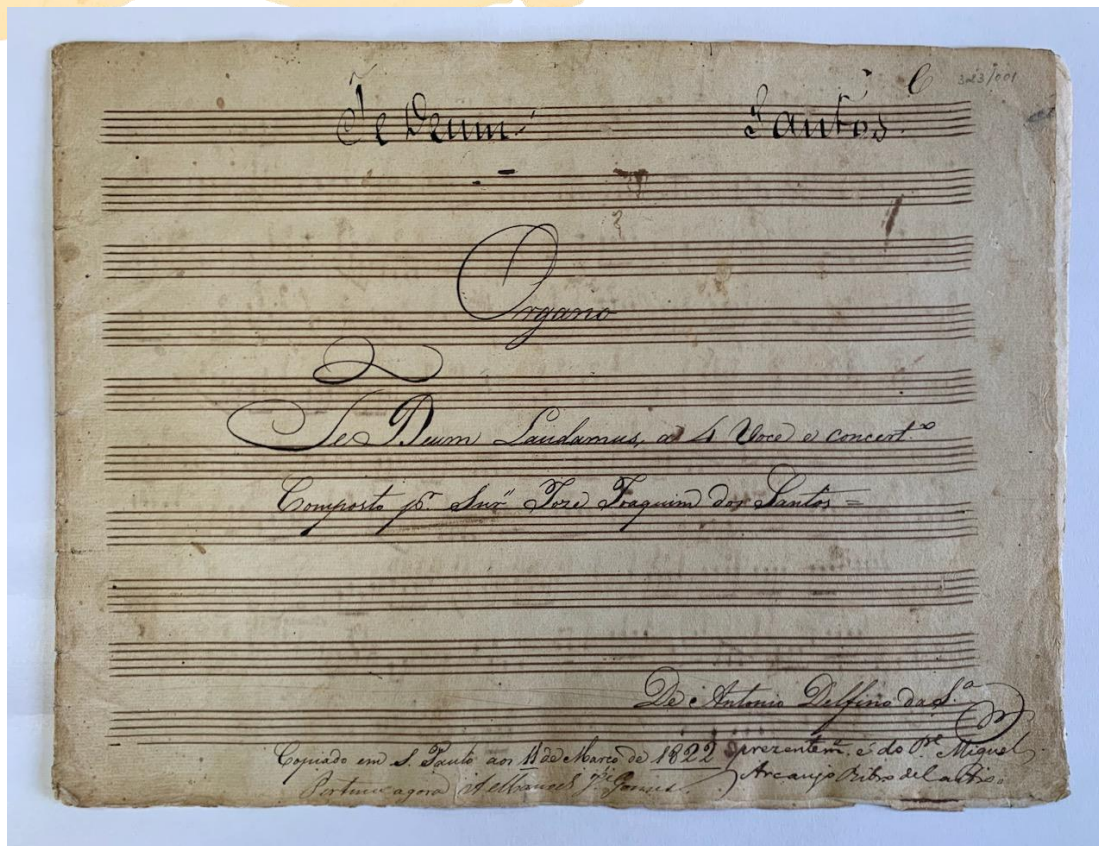 C 323/001
Te Deum Santos.
Organo
Te Deum Laudamus, a 4 Voce e concert.º
Composto p.r Snr. Joze Joaquim dos Santos =
De Antonio Delfino da S.ª
Copiado em S. Paulo aos 11 de Março de 1822
prezentem.e é do P.e Miguel
Arcanjo Ribro de
agora a Manoel Je. Gomes.